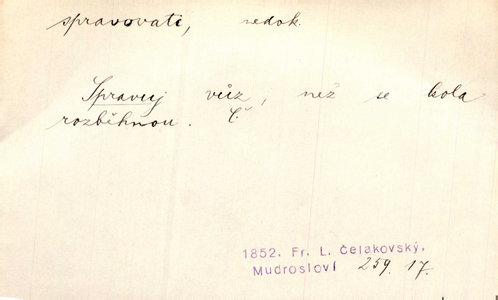 spravovati, nedok.
Spravuj vůz, než se kola
rozběhnou. Č.
1852. Fr. L. Čelakovský,
Mudrosloví 259. 17.